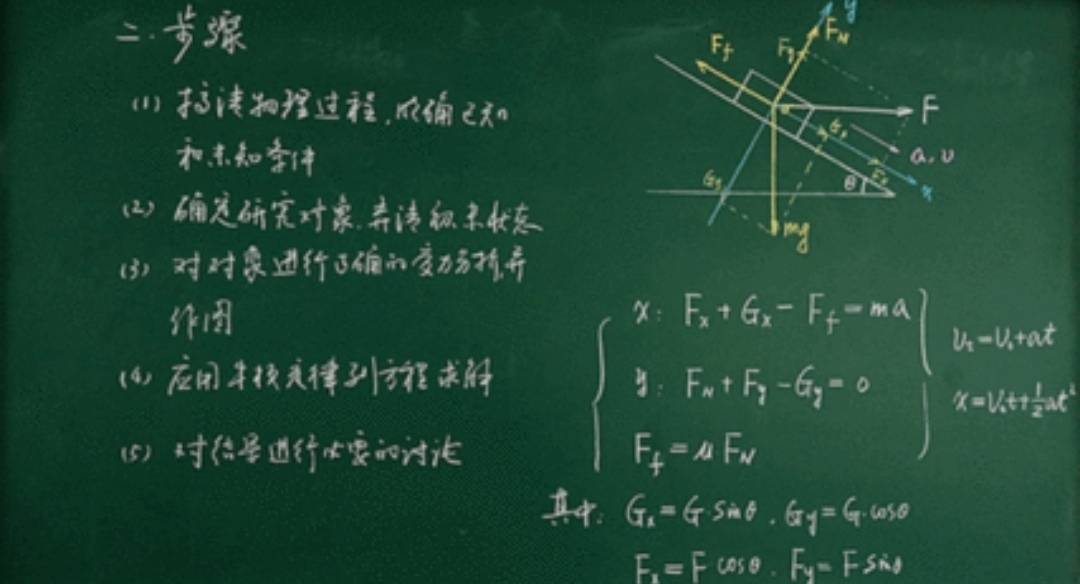 二.步骤
(1) 搞清物理过程,明确已知
和未知条件
(2) 确定研究对象.弄清初末状态
(3) 对对象进行正确的受力分析,并
作图
(4) 应用牛顿定律列方程求解
(5) 对结果进行必要的讨论
y
F_N
F_y
F_f
F
G_x
a.v
F_x
x
G_y
θ
mg
x: F_x+G_x-F_f=ma
y: F_N+F_y-G_y=0
F_f=μF_N
v_t=v_0+at
x=v_0t+½at²
其中: G_x=G·sinθ. G_y=G·cosθ
F_x=F cosθ. F_y=F sinθ